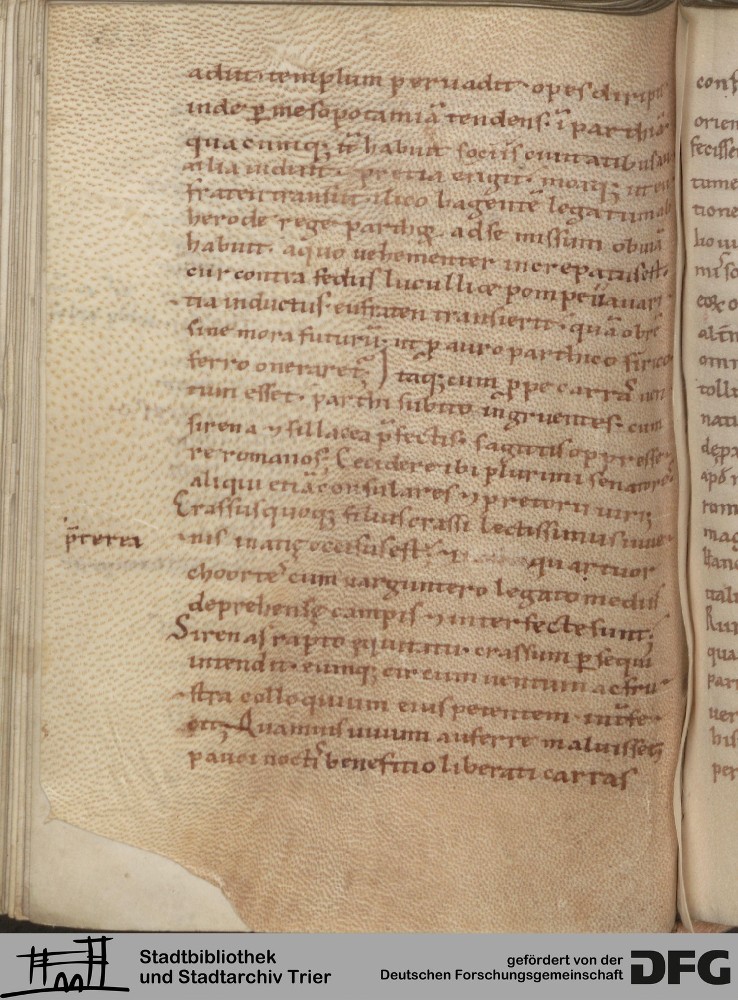 adiit. templum peruadit. opes diripuit
inde p mesopotamiā tendens. ī parthiā
quacumq; it habuit sociis ciuitatibus au
xilia indixit. pretia exegit. moxq; ut eu
fraten transiit. ilico bagentē legatum ab
herode rege parthoꝝ adse missum obuiā
habuit. aquo uehementer increpatus est.
cur contra fedus luculli ⁊ pompeii auari
tia inductus. eufraten transierit. quā obrē
sine mora futurū. ut p auro parthico sirico
ferro oneraret.
Itaq; cum ppe carras uen
tum esset. parthi subito ingruentes. cum
sirena ⁊ sillacea p̄fectis. sagittis oppresse
re romanos. Cecidere ibi plurimi senatores
aliqui etiā consulares ⁊ pretorii uiri;
Crassus quoq; filius crassi lectissimus iuue
p̄terea
nis in acie occisus est.
quattuor
choorte cum uarguntero legato mediis
deprehense campis ⁊ interfecte sunt.
Sirenas rapto equitatu crassum psequi
intendit. eumq; circumuentum ac fru
stra colloquium eius petentem. interfe
cit; Quamuis uiuum auferre maluisset;
pauci noctis benefitio liberati carras
conf
orien
fecisse
tume
tione
altn
omn
tolli
nati
rom
mag
quali
qua
part
uer
bis
per
Stadtbibliothek
und Stadtarchiv Trier
gefördert von der
Deutschen Forschungsgemeinschaft
DFG